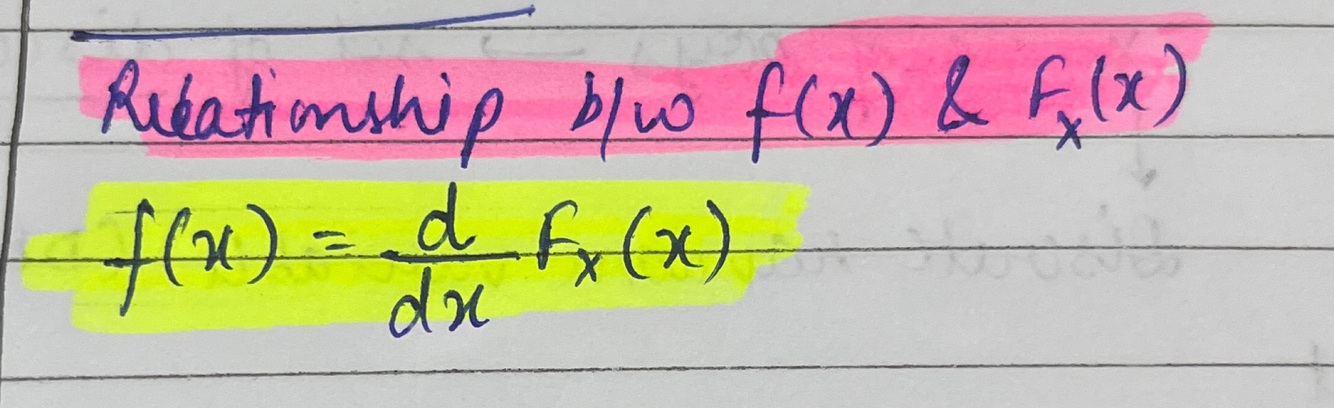 Relationship b/w f(x) & F_x(x)
f(x) = d/dx F_x(x)